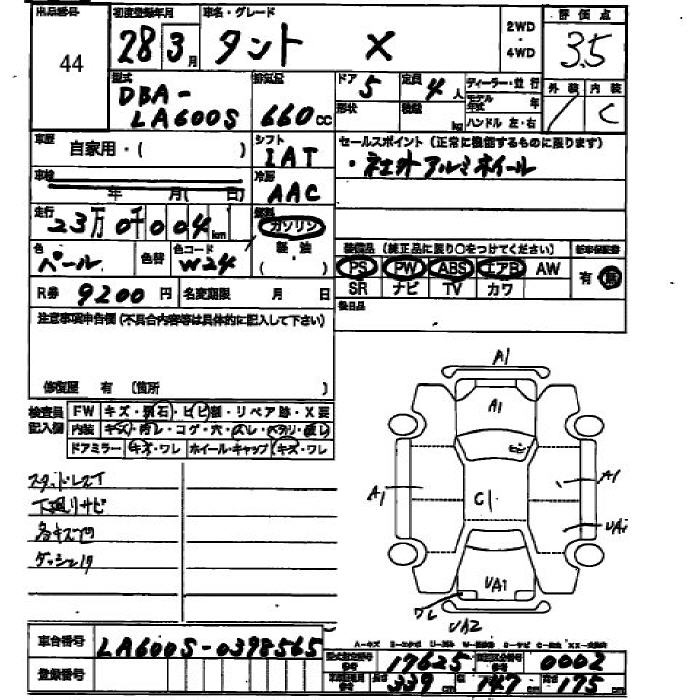 出品番号
44
初度登録年月
28 3月
車名・グレード
タント X
2WD
・
4WD
評価点
3.5
外装 内装
/ C
型式
DBA-
LA600S
排気量
660cc
ドア 5
定員 4人
形状
積載 kg
ディーラー・並行
モデル年式 年
ハンドル 左・右
車歴
自家用・( )
シフト
IAT
セールスポイント (正常に機能するものに限ります)
・社外アルミホイール
車検
年 月( 日)
冷房
AAC
走行
23万0千004km
燃料
ガソリン
軽・油
( )
色
パール
色替
色コード
W24
装備品 (純正品に限り○をつけてください)
PS PW ABS エアB AW
SR ナビ TV カワ
新車保証書
有 無
後日品
R券 9200円
名変期限 月 日
注意事項申告欄 (不具合内容等は具体的に記入して下さい)
修復歴 有 (箇所 )
検査員
記入欄
FW キズ・飛石・ヒビ割・リペア跡・X要
内装 キズ・汚レ・コゲ・穴・スレ・ヘタリ・破レ
ドアミラー キズ・ワレ ホイール・キャップ キズ・ワレ
スタッドレスT
下廻りサビ
各キズ凹
A1
A1
ヒビ
A1
C1
A1
UA1
UA1
ワレ
UA2
車台番号 LA600S-0398565
登録番号
型式指定番号 17625
類別区分番号 0002
長さ 339cm 幅 147cm 高さ 175cm